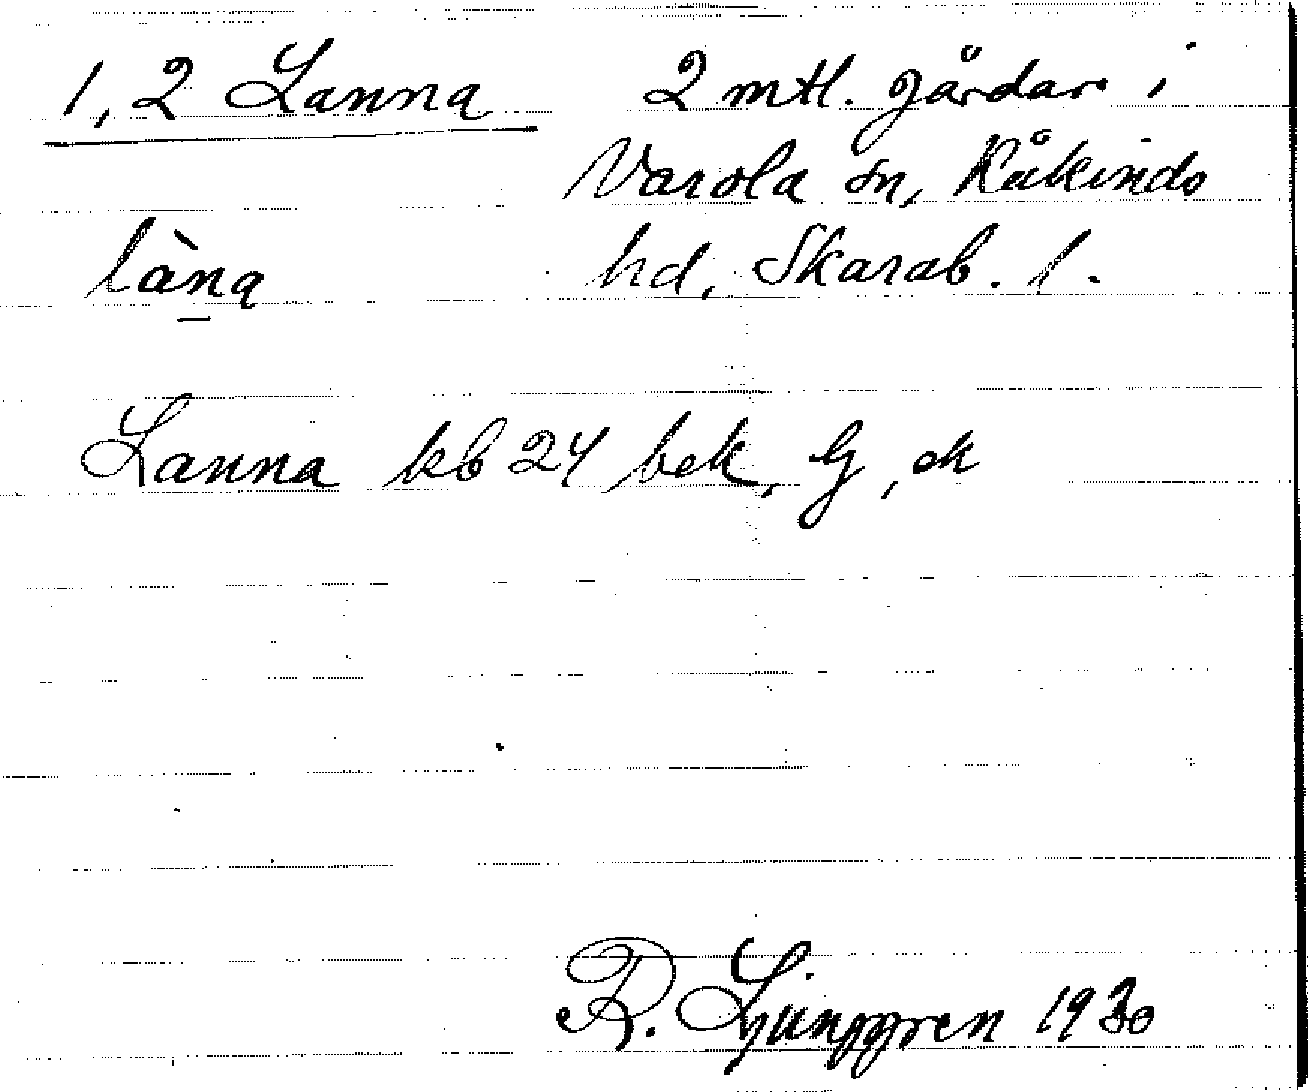 1, 2 Lanna 2 mtl. gårdar i
Varola sn, Kåkinds
làna hd, Skarab. l.
Lanna kb 24 bek, G, ek
R. Ljunggren 1930